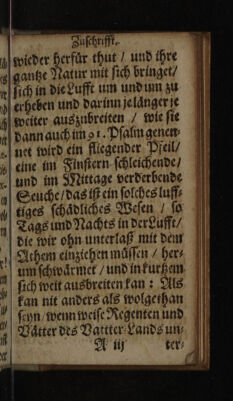 Zuschrifft.
wieder herfür thut / und ihre
gantze Natur mit sich bringet /
sich in die Lufft um und um zu
erheben und darinn je länger je
weiter auszubreiten / wie sie
dann auch im 91. Psalm genen-
net wird ein fliegender Pfeil /
eine im Finstern schleichende /
und im Mittage verderbende
Seuche / das ist ein solches luff-
tiges schädliches Wesen / so
Tags und Nachts in der Lufft /
die wir ohn unterlaß mit dem
Athem einziehen müssen / her-
um schwärmet / und in kurtzem
sich weit ausbreiten kan : Als
kan nit anders als wolgethan
seyn / wenn weise Regenten und
Vätter des Vatter-Lands un-
A iij ter-